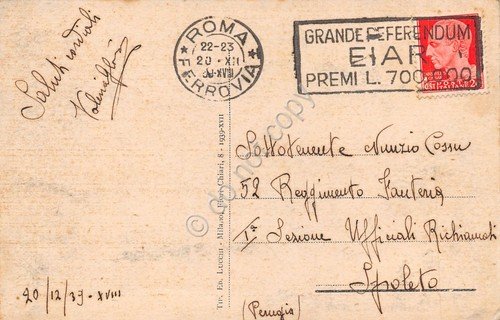 Saluti cordiali
ROMA
FERROVIA
22-23
20·XII
39-XVIII
GRANDE REFERENDUM
EIAR
PREMI L. 700
Sottotenente Nunzio Cossu
52 Reggimento Fanteria
Iª Sezione Ufficiali Richiamati
Spoleto
(Perugia)
20/12/39-XVIII
Tip. Ed. Lucchi - Milano, Fiori Chiari, 8 - 1939-XVII
do not copy